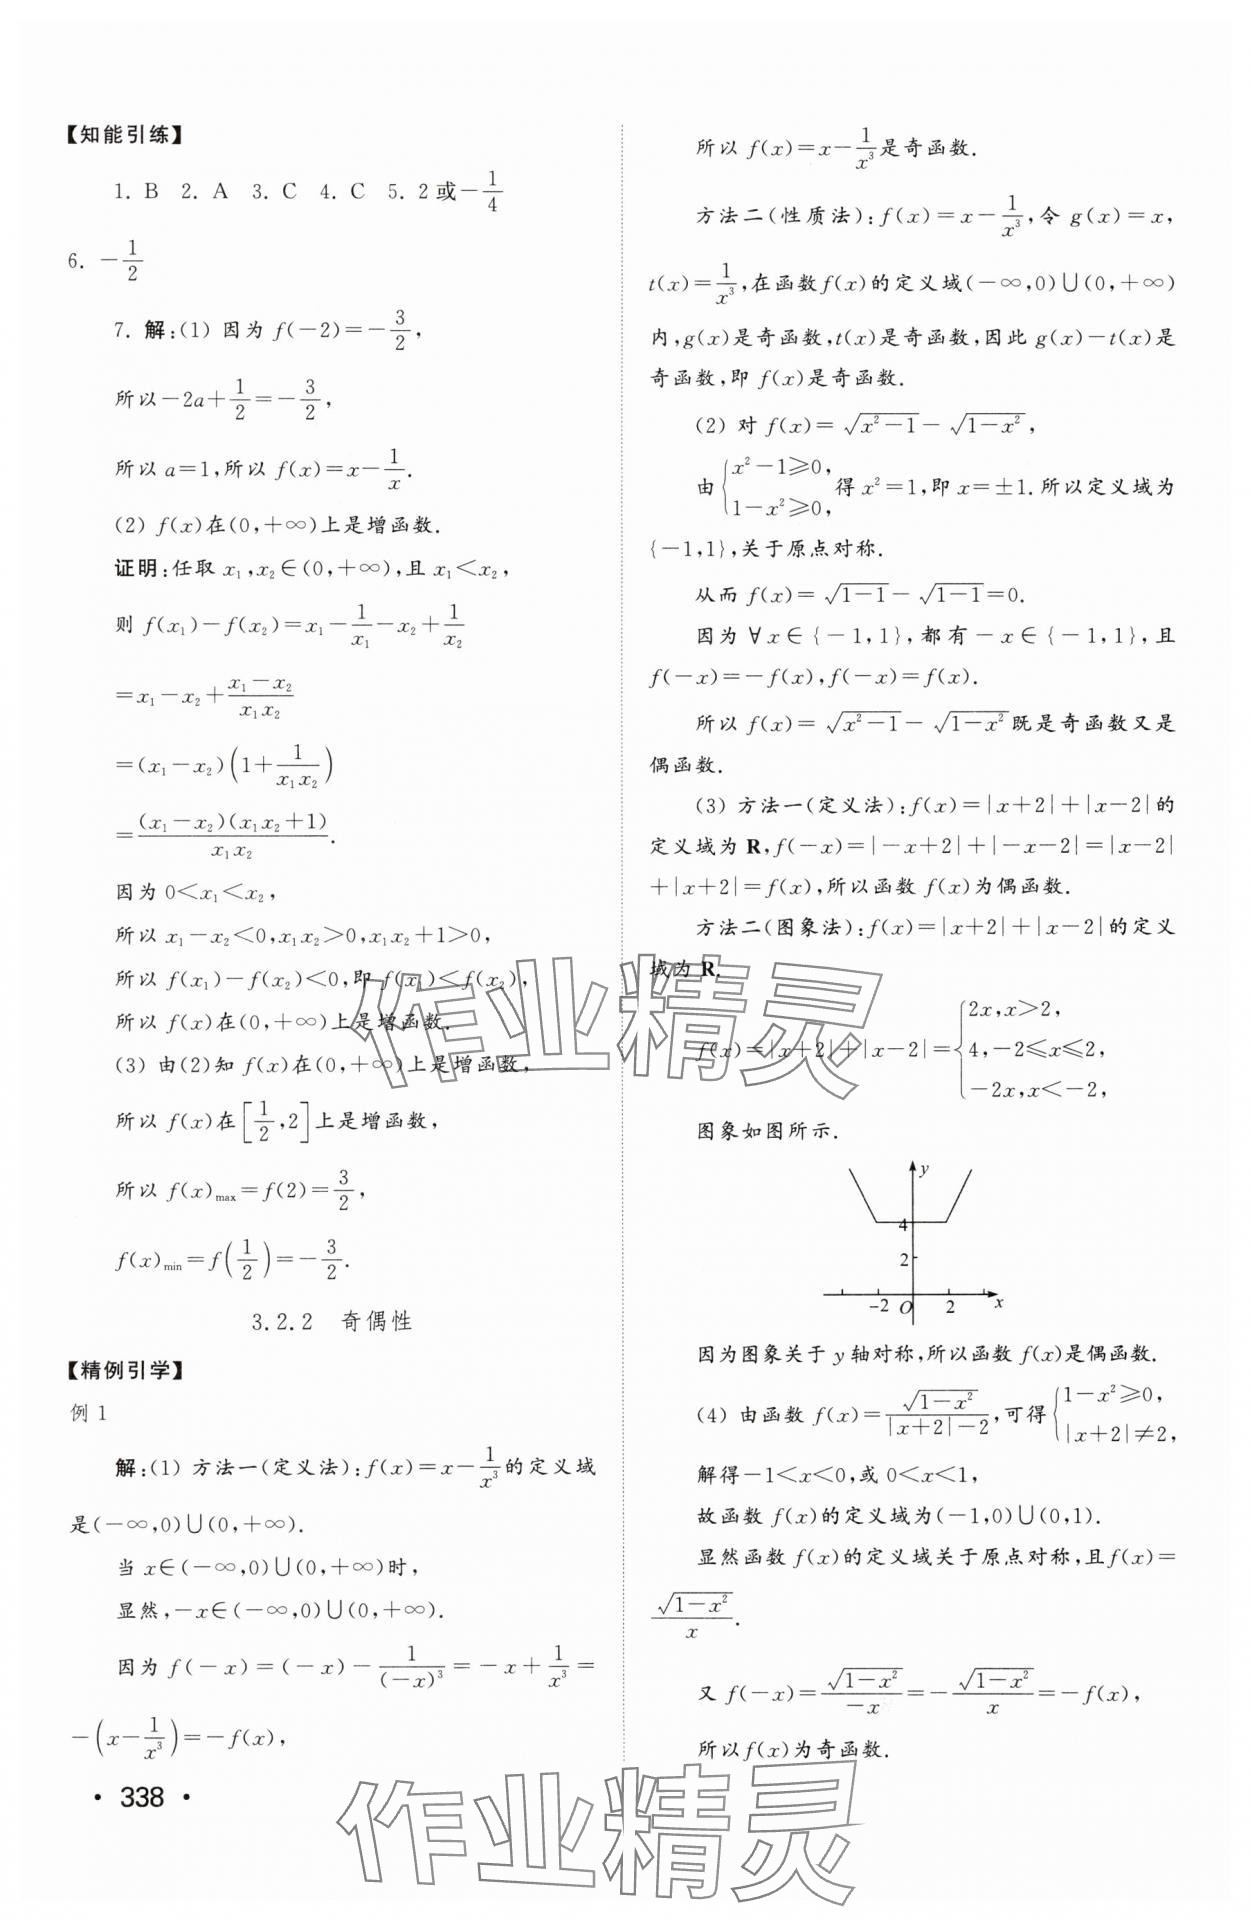 【知能引练】
1. B  2. A  3. C  4. C  5. 2或−1/4
6. −1/2
7. 解:(1) 因为 f(−2)=−3/2,
所以−2a+1/2=−3/2,
所以 a=1,所以 f(x)=x−1/x.
(2) f(x)在(0,+∞)上是增函数.
证明:任取 x₁,x₂∈(0,+∞),且 x₁<x₂,
则 f(x₁)−f(x₂)=x₁−1/x₁−x₂+1/x₂
=x₁−x₂+(x₁−x₂)/(x₁x₂)
=(x₁−x₂)(1+1/(x₁x₂))
=(x₁−x₂)(x₁x₂+1)/(x₁x₂).
因为 0<x₁<x₂,
所以 x₁−x₂<0,x₁x₂>0,x₁x₂+1>0,
所以 f(x₁)−f(x₂)<0,即 f(x₁)<f(x₂),
所以 f(x)在(0,+∞)上是增函数.
(3) 由(2)知 f(x)在(0,+∞)上是增函数,
所以 f(x)在[1/2,2]上是增函数,
所以 f(x)max=f(2)=3/2,
f(x)min=f(1/2)=−3/2.
3.2.2 奇偶性
【精例引学】
例 1
解:(1) 方法一(定义法):f(x)=x−1/x³的定义域
是(−∞,0)∪(0,+∞).
当 x∈(−∞,0)∪(0,+∞)时,
显然,−x∈(−∞,0)∪(0,+∞).
因为 f(−x)=(−x)−1/(−x)³=−x+1/x³=
−(x−1/x³)=−f(x),
• 338 •
所以 f(x)=x−1/x³是奇函数.
方法二(性质法):f(x)=x−1/x³,令 g(x)=x,
t(x)=1/x³,在函数f(x)的定义域(−∞,0)∪(0,+∞)
内,g(x)是奇函数,t(x)是奇函数,因此 g(x)−t(x)是
奇函数,即 f(x)是奇函数.
(2) 对 f(x)=√(x²−1)−√(1−x²),
由{x²−1≥0, 1−x²≥0, 得 x²=1,即 x=±1.所以定义域为
{−1,1},关于原点对称.
从而 f(x)=√(1−1)−√(1−1)=0.
因为 ∀x∈{−1,1},都有−x∈{−1,1},且
f(−x)=−f(x),f(−x)=f(x).
所以 f(x)=√(x²−1)−√(1−x²)既是奇函数又是
偶函数.
(3) 方法一(定义法):f(x)=|x+2|+|x−2|的
定义域为 R,f(−x)=|−x+2|+|−x−2|=|x−2|
+|x+2|=f(x),所以函数 f(x)为偶函数.
方法二(图象法):f(x)=|x+2|+|x−2|的定义
域为 R.
f(x)=|x+2|+|x−2|={2x,x>2, 4,−2≤x≤2, −2x,x<−2,
图象如图所示.
y
4
2
−2 O 2 x
因为图象关于 y 轴对称,所以函数 f(x)是偶函数.
(4) 由函数 f(x)=√(1−x²)/(|x+2|−2),可得{1−x²≥0, |x+2|≠2,
解得−1<x<0,或 0<x<1,
故函数 f(x)的定义域为(−1,0)∪(0,1).
显然函数 f(x)的定义域关于原点对称,且f(x)=
√(1−x²)/x.
又 f(−x)=√(1−x²)/(−x)=−√(1−x²)/x=−f(x),
所以f(x)为奇函数.
作业精灵
作业精灵